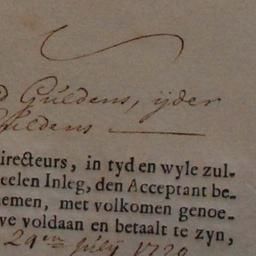 d Guldens, ijder
Guldens
irecteurs, in tyd en wyle zul-
eelen Inleg, den Acceptant be-
emen, met volkomen genoe-
ve voldaan en betaalt te zyn,
29en july 1720